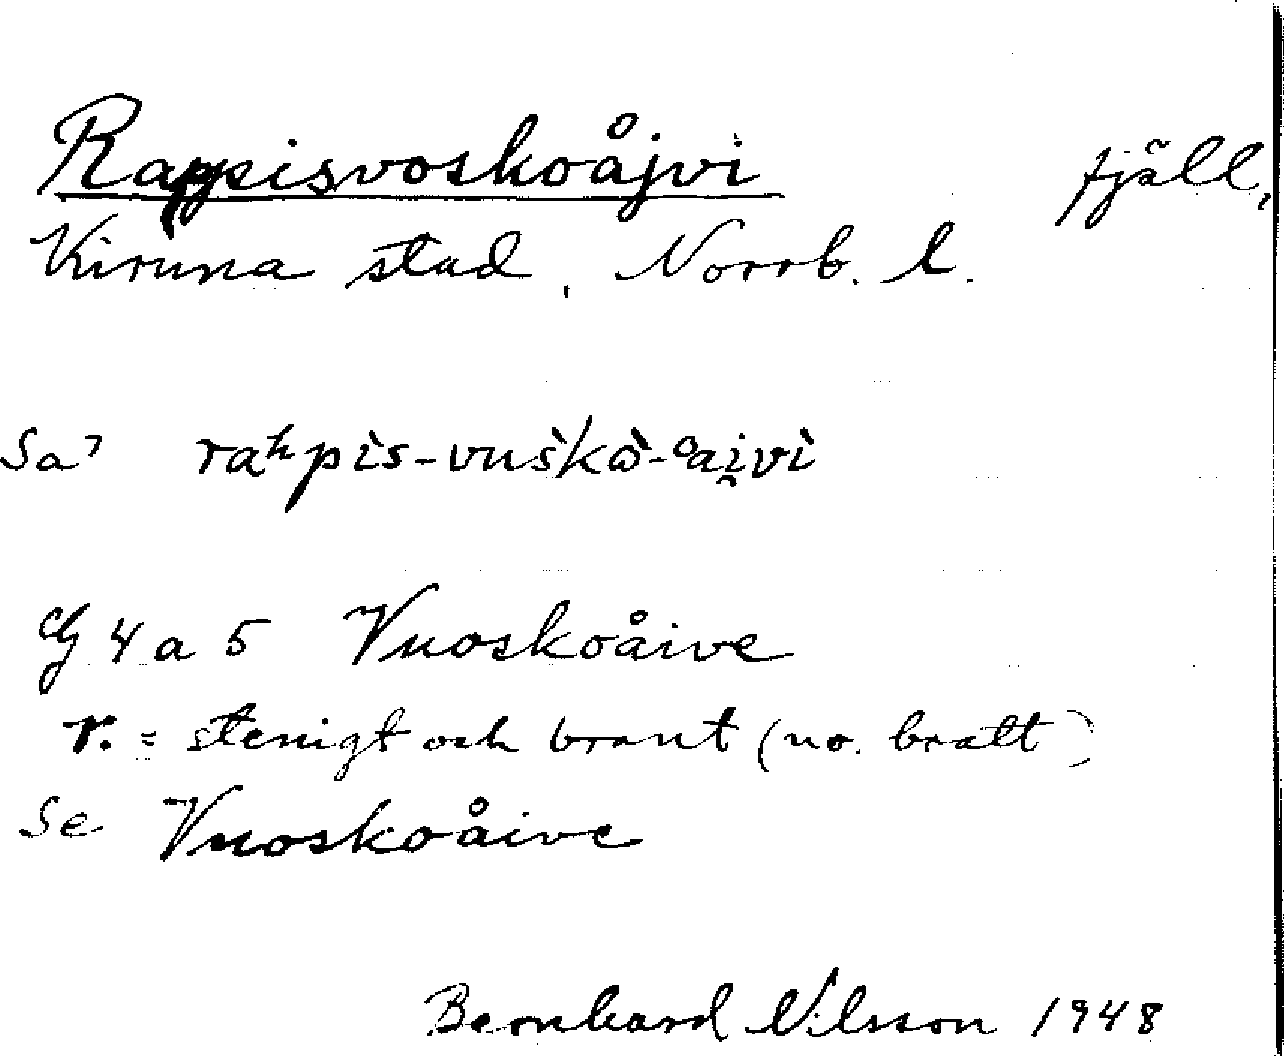 Rappisvoskoåjvi fjäll,
Kiruna stad, Norrb. l.
Sa⁷ raʰpìs-vuškò̀-ᵒai̯vì
G 4 a 5 Vuoskoåive
r. = stenigt och brant (no. bratt)
Se Vuoskoåive
Bernhard Nilsson 1948